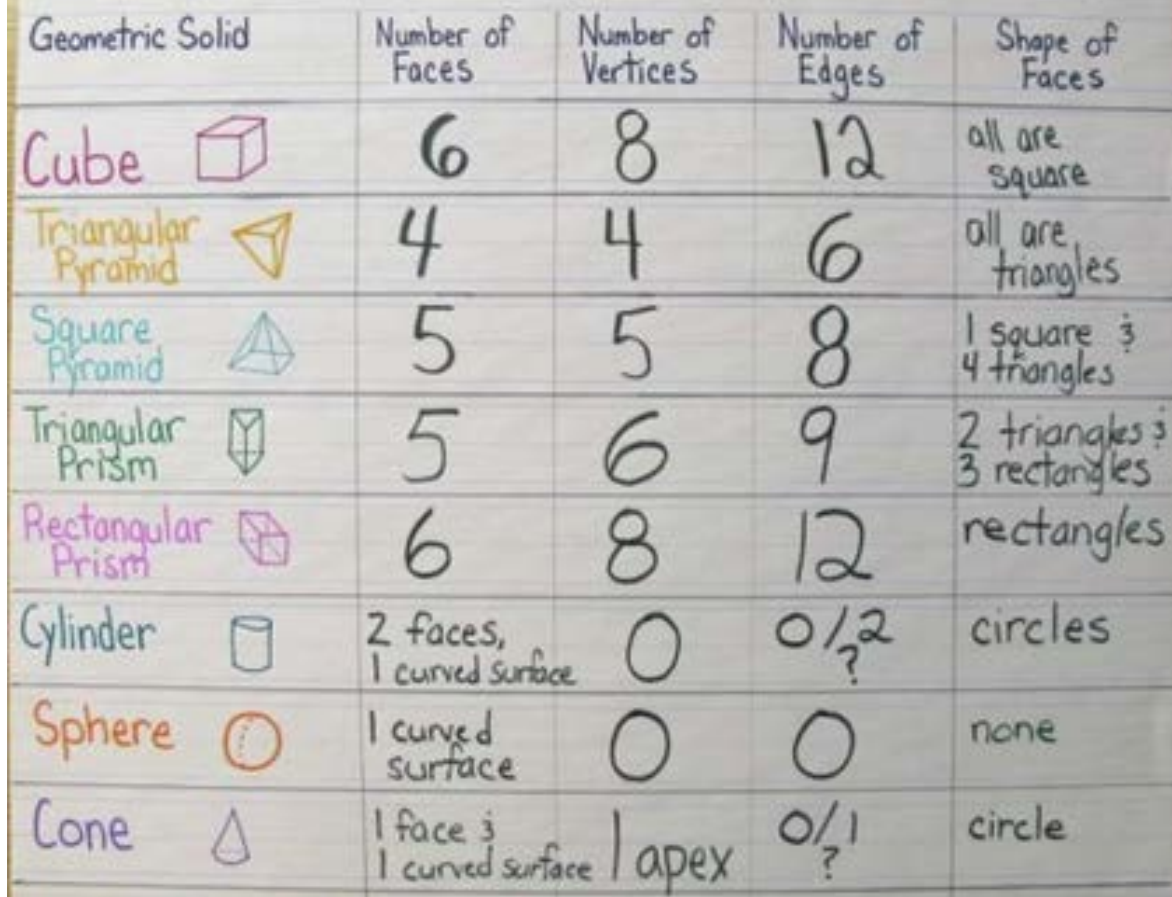 Geometric Solid Number of Faces Number of Vertices Number of Edges Shape of Faces
Cube 6 8 12 all are square
Triangular Pyramid 4 4 6 all are triangles
Square Pyramid 5 5 8 1 square & 4 triangles
Triangular Prism 5 6 9 2 triangles & 3 rectangles
Rectangular Prism 6 8 12 rectangles
Cylinder 2 faces, 1 curved surface 0 0/2 ? circles
Sphere 1 curved surface 0 0 none
Cone 1 face & 1 curved surface 1 apex 0/1 ? circle